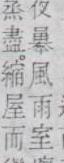 夜暴風雨室
蒸盡。縮屋而